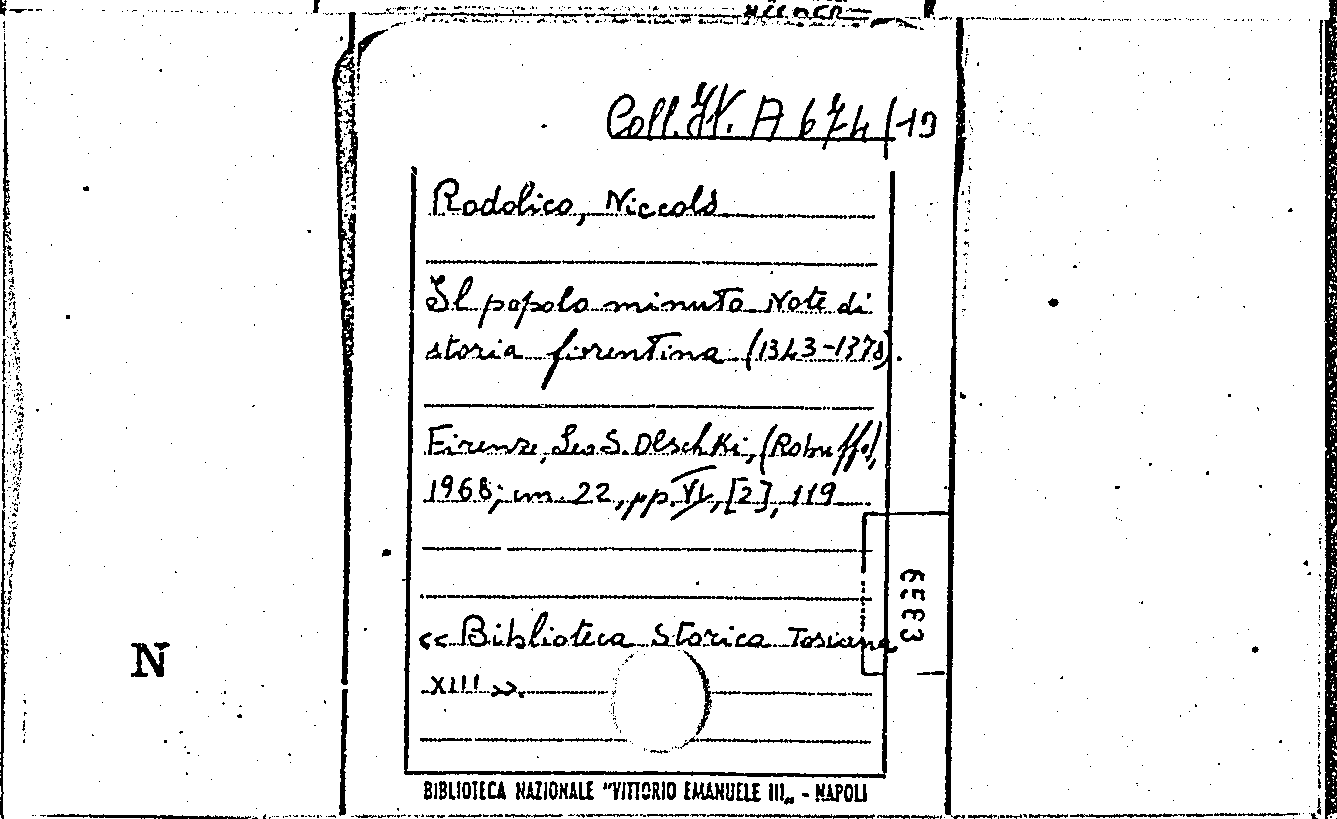 Coll. It. A 674/19
Rodolico, Niccolò
Il popolo minuto Note di
storia fiorentina (1343-1378).
Firenze, Leo S. Olschki, (Robuffo),
1968; cm. 22, pp. VI, [2], 119
6583
« Biblioteca Storica Toscana
XIII ».
N
BIBLIOTECA NAZIONALE "VITTORIO EMANUELE III„ - NAPOLI